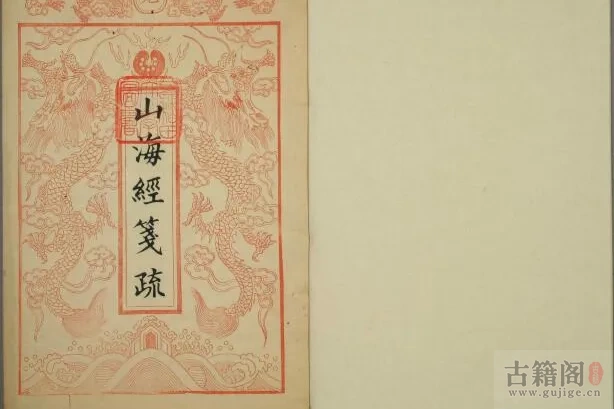 山海經箋疏
古籍阁
www.gujige.cn